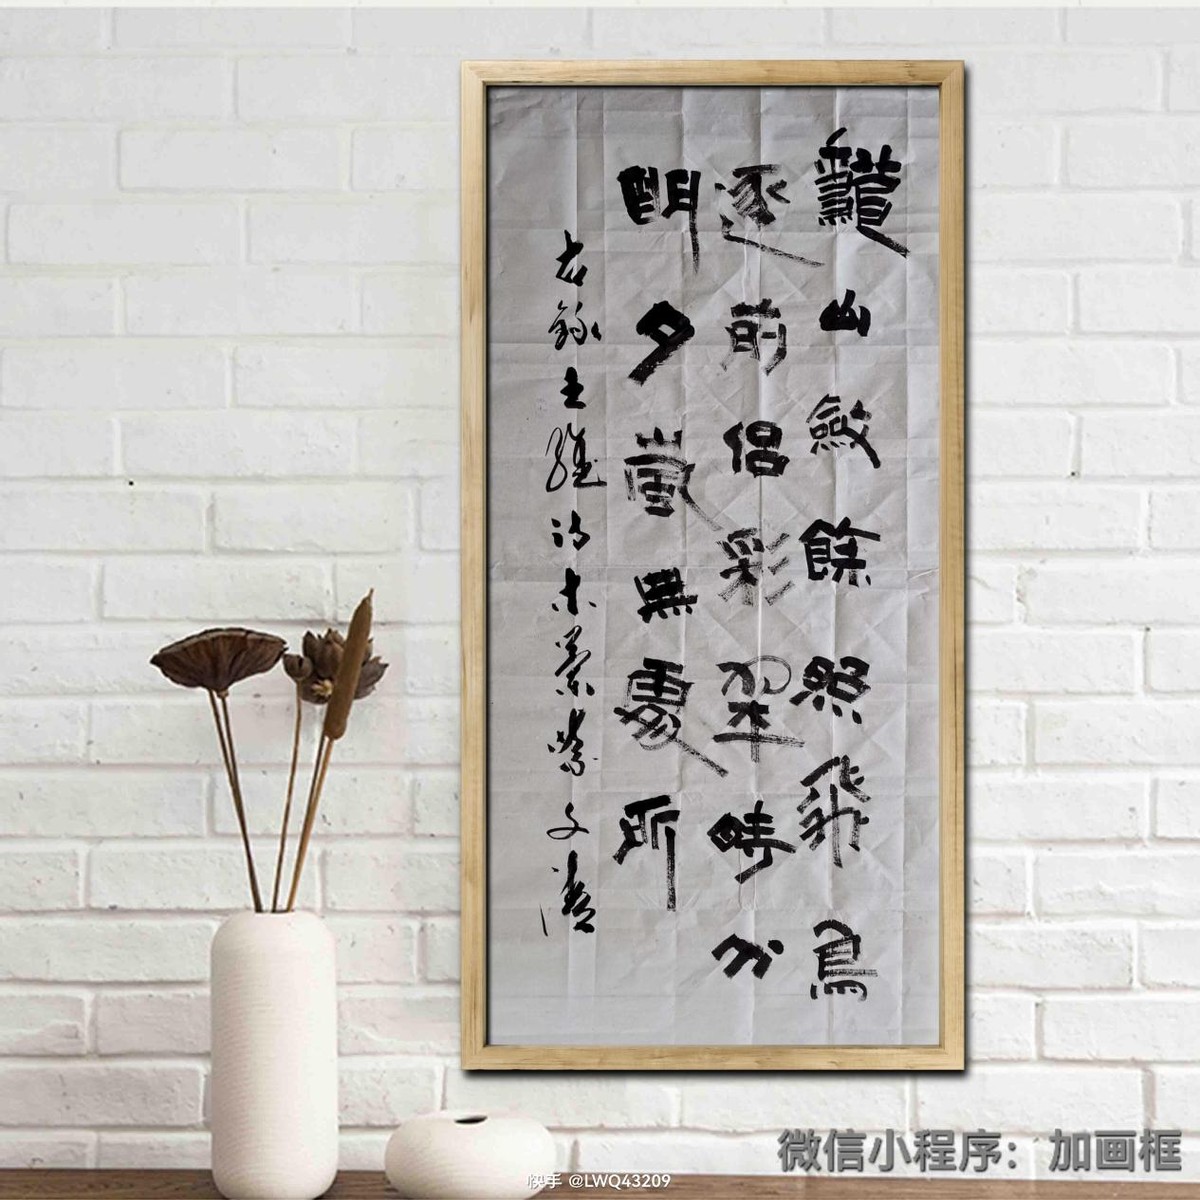 龝山斂餘照飛鳥
逐前侶彩翠時分
明夕嵐無處所
右錄王維詩木蘭柴文清
微信小程序：加画框
快手 @LWQ43209